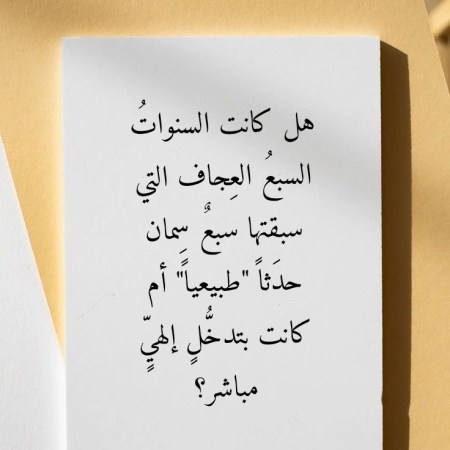 هل كانت السنواتُ
السبعُ العِجاف التي
سبقتها سبعٌ سِمان
حدَثاً "طبيعياً" أم
كانت بتدخُّلٍ إلهيٍّ
مباشر؟